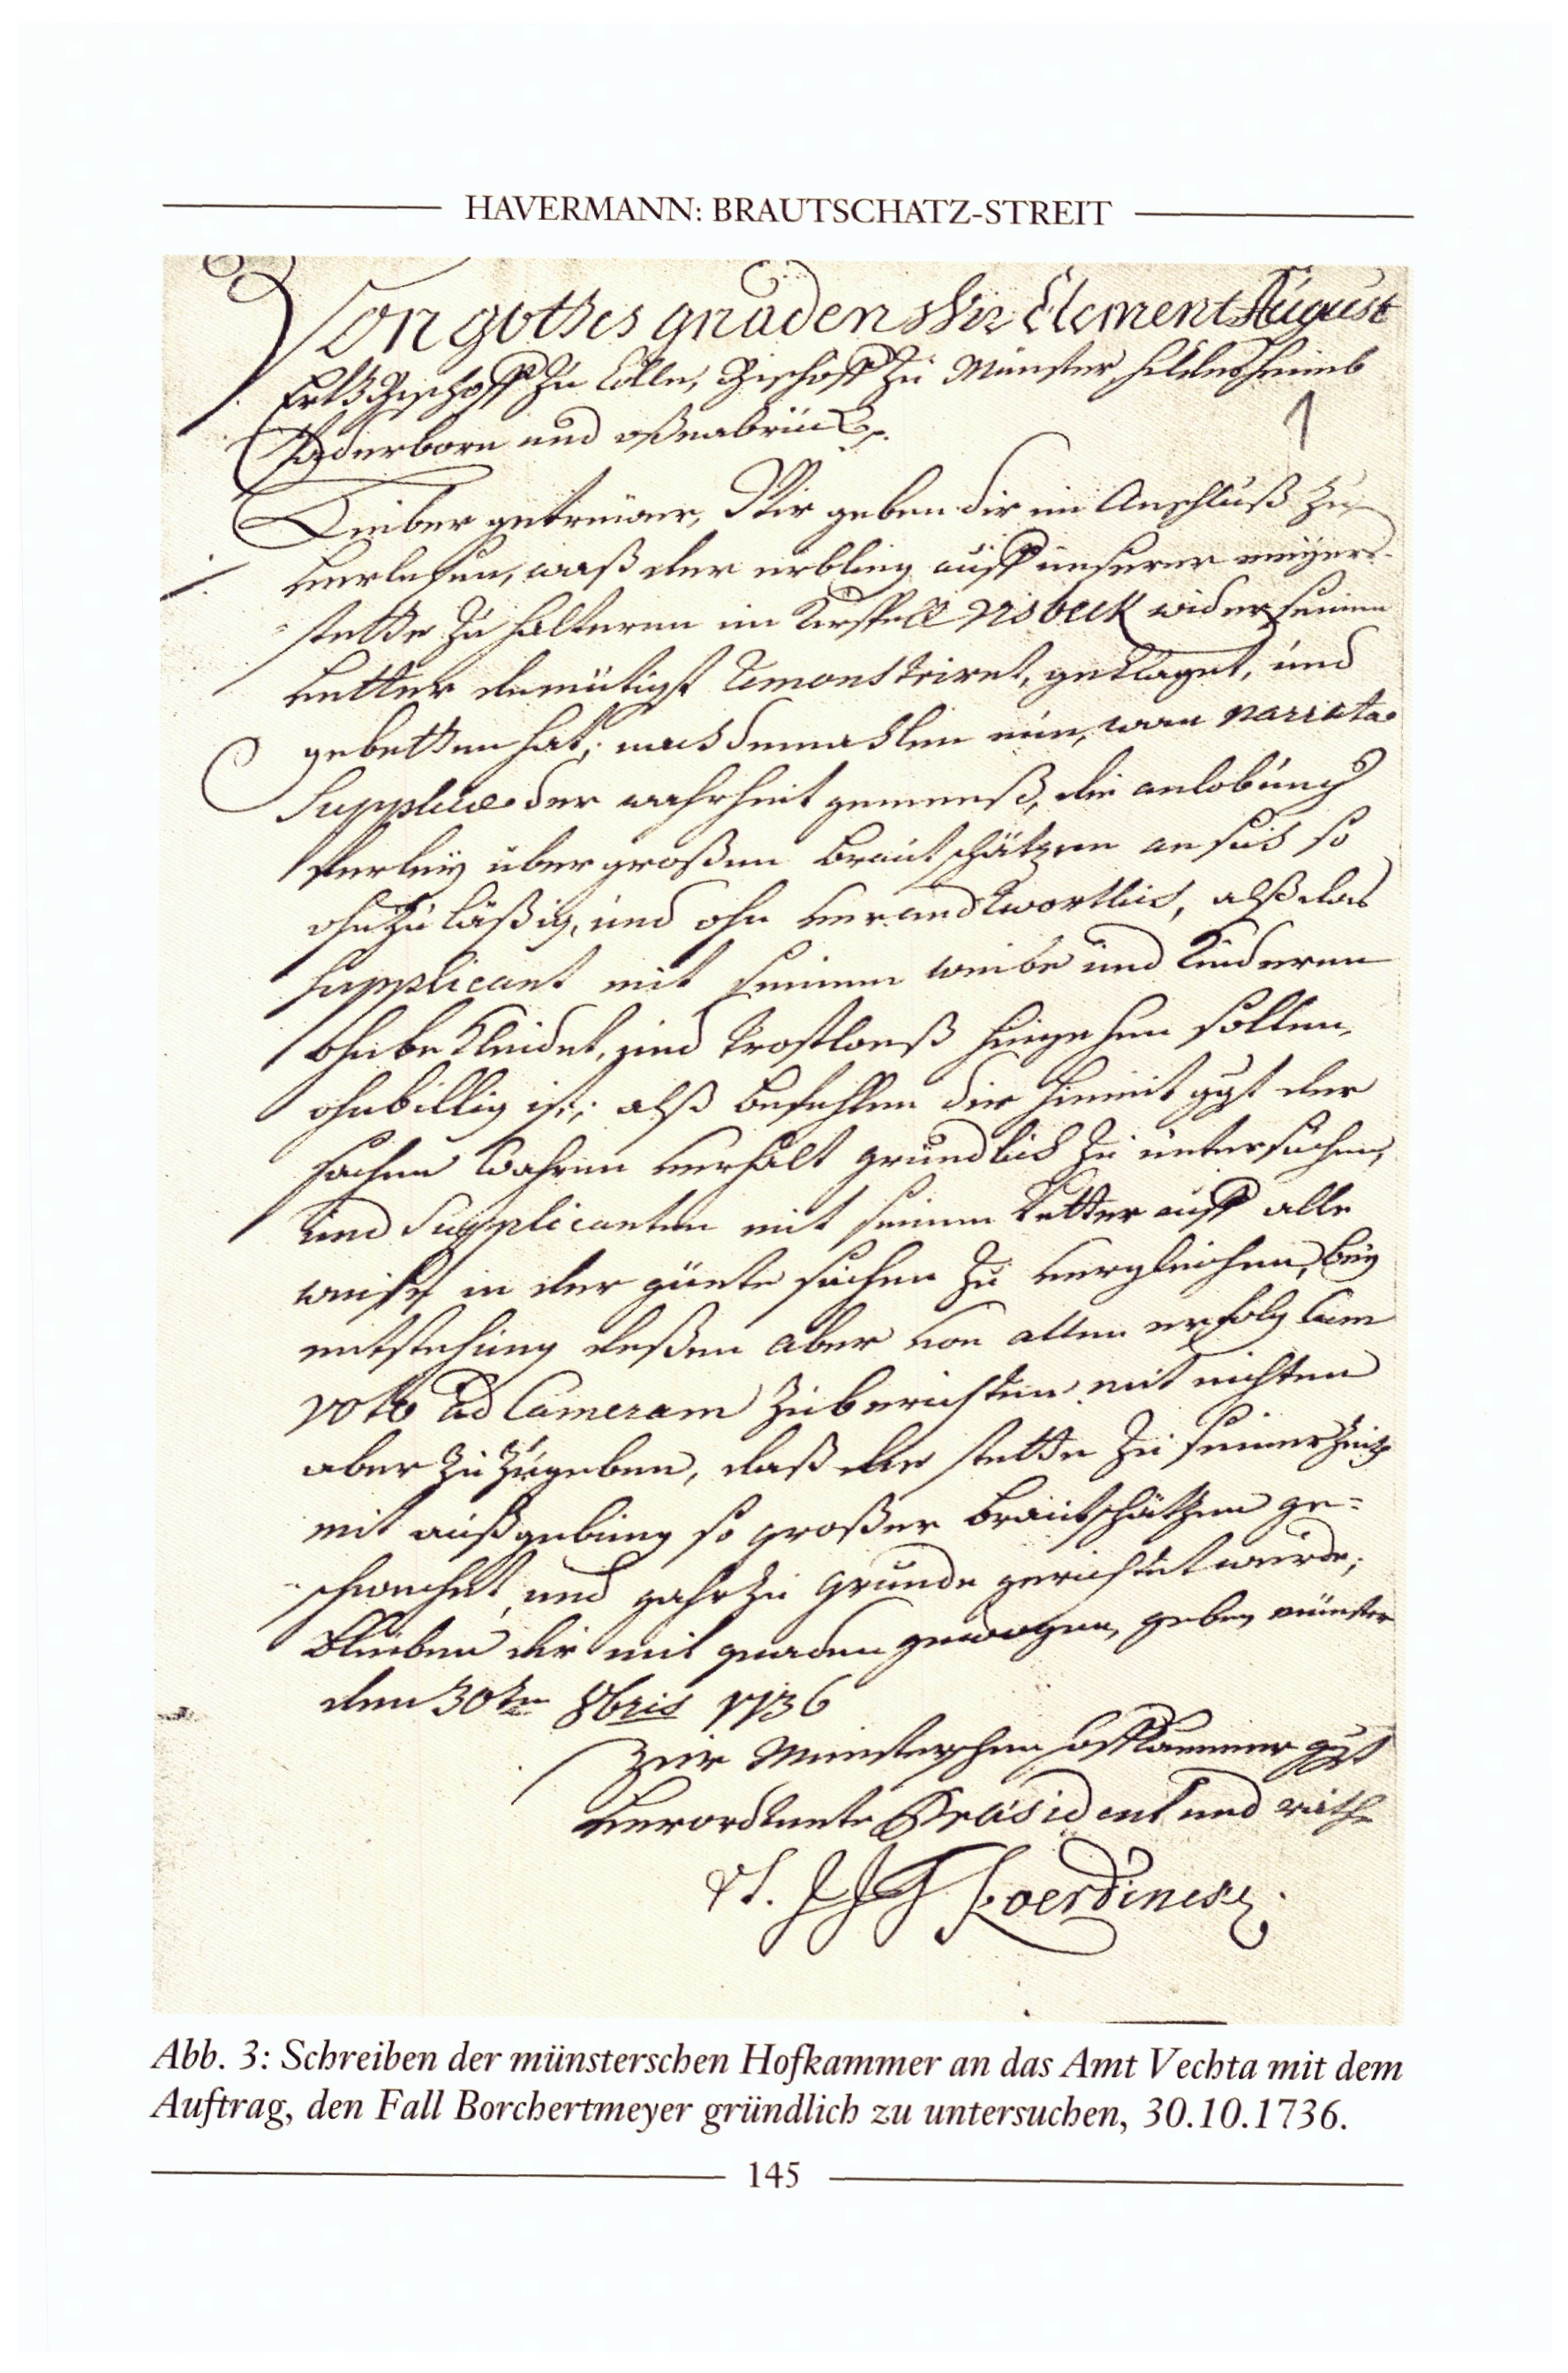 HAVERMANN: BRAUTSCHATZ-STREIT
Von gottes gnaden Wir Clement August
Ertzbischoff zu Cölln, Bischoff zu Münster, Hildesheimb
Paderborn und oßnabrück p.
1
Lieber getreüwer, Wir geben dir im Anschluß zu
verlesen, waß der erbling auff unserer meyers-
stette zu halteren im Kirspell Visbeck wider seinen
Vetter demütigst remonstriret, geklaget, und
gebetten hat; nachdemahlen nun, wan narrata
Supplicae der wahrheit gemeeß, die anlobung
derley übergroßen brautschätzen an sich so
ohnzuläßig, und ohnverandtwortlich, alß das
supplicant mit seinem weibe und Kinderen
ohnbekleidet, und trostloeß hingehen sollen,
ohnbillig ist; alß befehlen dir hiemit ggst der
sachen wahren verhalt gründlich zu untersuchen,
und Supplicanten mit seinem Vetter auff alle
weise in der güete suchen zu vergleichen, bey
entstehung deßen aber von allen erfolg cum
voto ad Cameram zu berichten mit nichten
aber zuzugeben, daß die stette zu seiner Zeit
mit außgebung so großer brautschätzen ge-
schwechet, und gahr zu grunde gerichtet würde;
Bleiben dir mit gnaden gewogen, geben münster
den 30ten 8bris 1736
Zur Münsterschen Hoffkammer ggst
verordtnete Präsident und räthe
Vt. J J G
Abb. 3: Schreiben der münsterschen Hofkammer an das Amt Vechta mit dem
Auftrag, den Fall Borchertmeyer gründlich zu untersuchen, 30.10.1736.
145